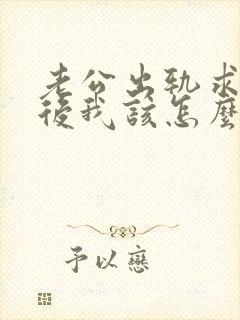 老公出轨求
後我該怎麼
予以戀